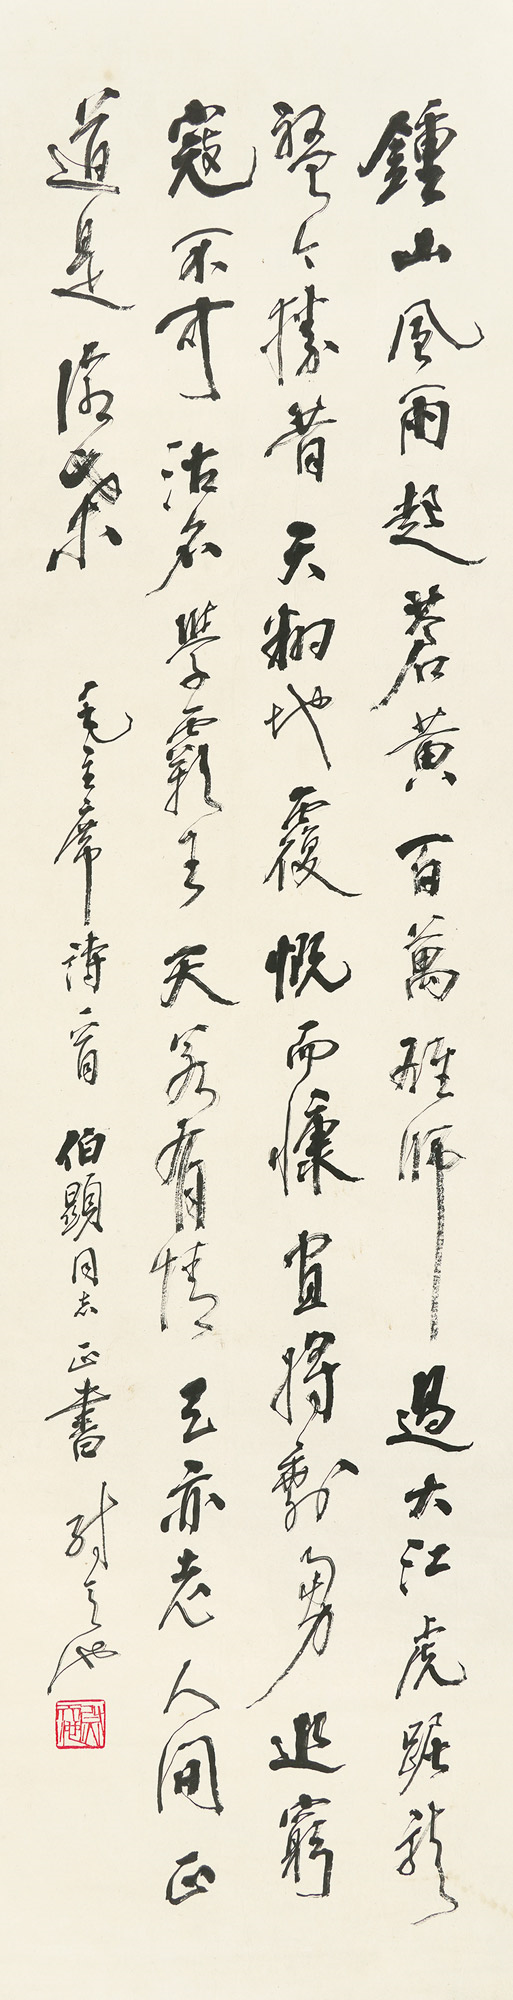 鍾山風雨起蒼黃百萬雄師過大江虎踞龍
盤今勝昔天翻地覆慨而慷宜將剩勇追窮
寇不可沽名學霸王天若有情天亦老人間正
道是滄桑 毛主席詩一首 伯顯同志正書 尉天池